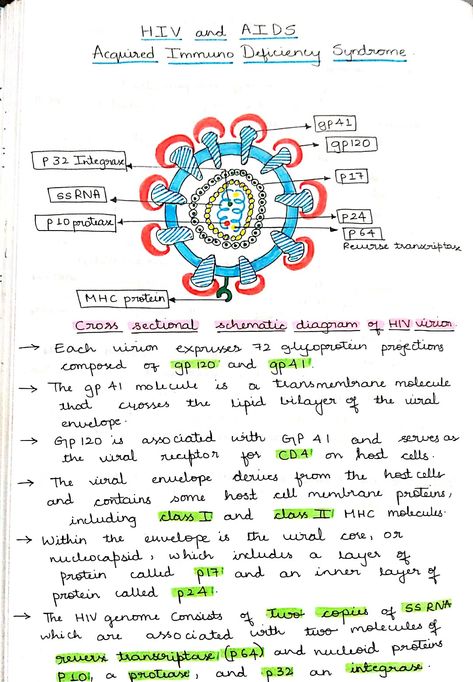 HIV and AIDS
Acquired Immuno Deficiency Syndrome.
gp41
gp120
p 32 Integrase
p17
SSRNA
p24
p 10 protiase
p 64
Reverse transcriptase
MHC protein
Cross sectional schematic diagram of HIV virion.
→ Each virion expresses 72 glyoprotein projections
composed of gp120 and gp41.
→ The gp 41 molecule is a transmembrane molecule
that crosses the lipid bilayer of the viral
envelope.
→ GP 120 is associated with GP 41 and serves as
the viral receptor for CD4 on host cells.
→ The viral envelope derives from the host cells
and contains some host cell membrane proteins,
including class I and class II MHC molecules.
→ Within the envelope is the viral core, or
nucleocapsid, which includes a layer of
protein called p17 and an inner layer of
protein called p24.
→ The HIV genome consists of two copies of SS RNA
which are associated with two molecules of
reverse transcriptase (p64) and nucloid proteins
p10, a protiase, and p32 an integrase.